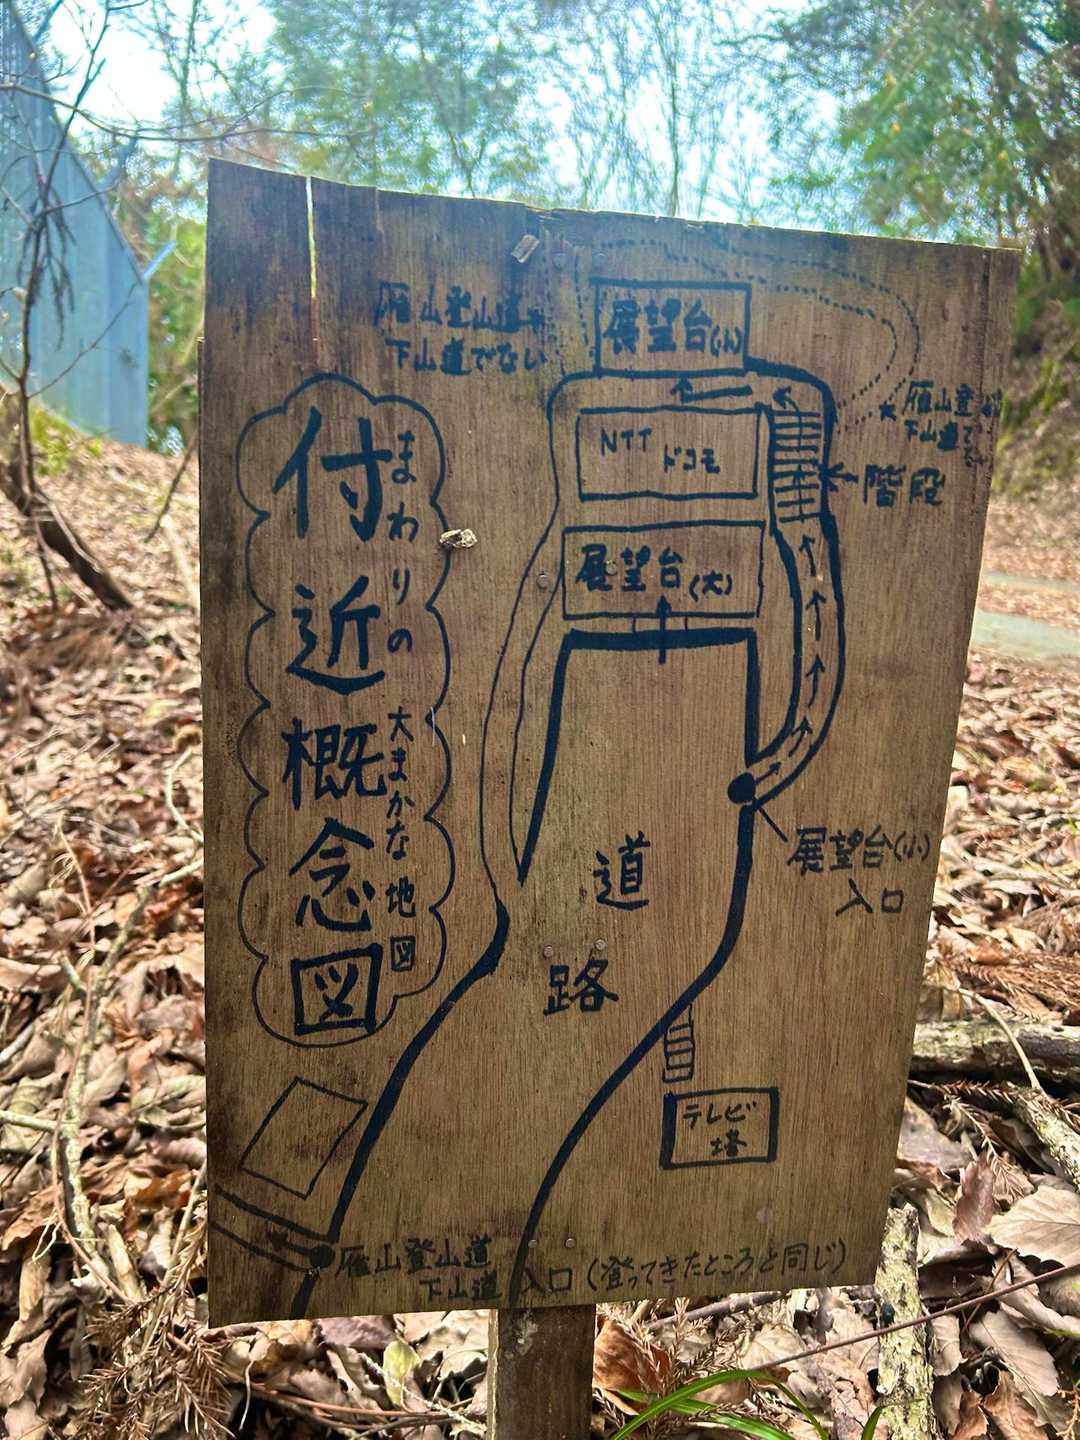 付近概念図
まわりの
大まかな地図
雁山登山道や
下山道でない
展望台(小)
NTT
ドコモ
展望台(大)
雁山登
下山道でな
階段
展望台(小)
入口
道
路
テレビ
塔
雁山登山道
下山道 入口(登ってきたところと同じ)